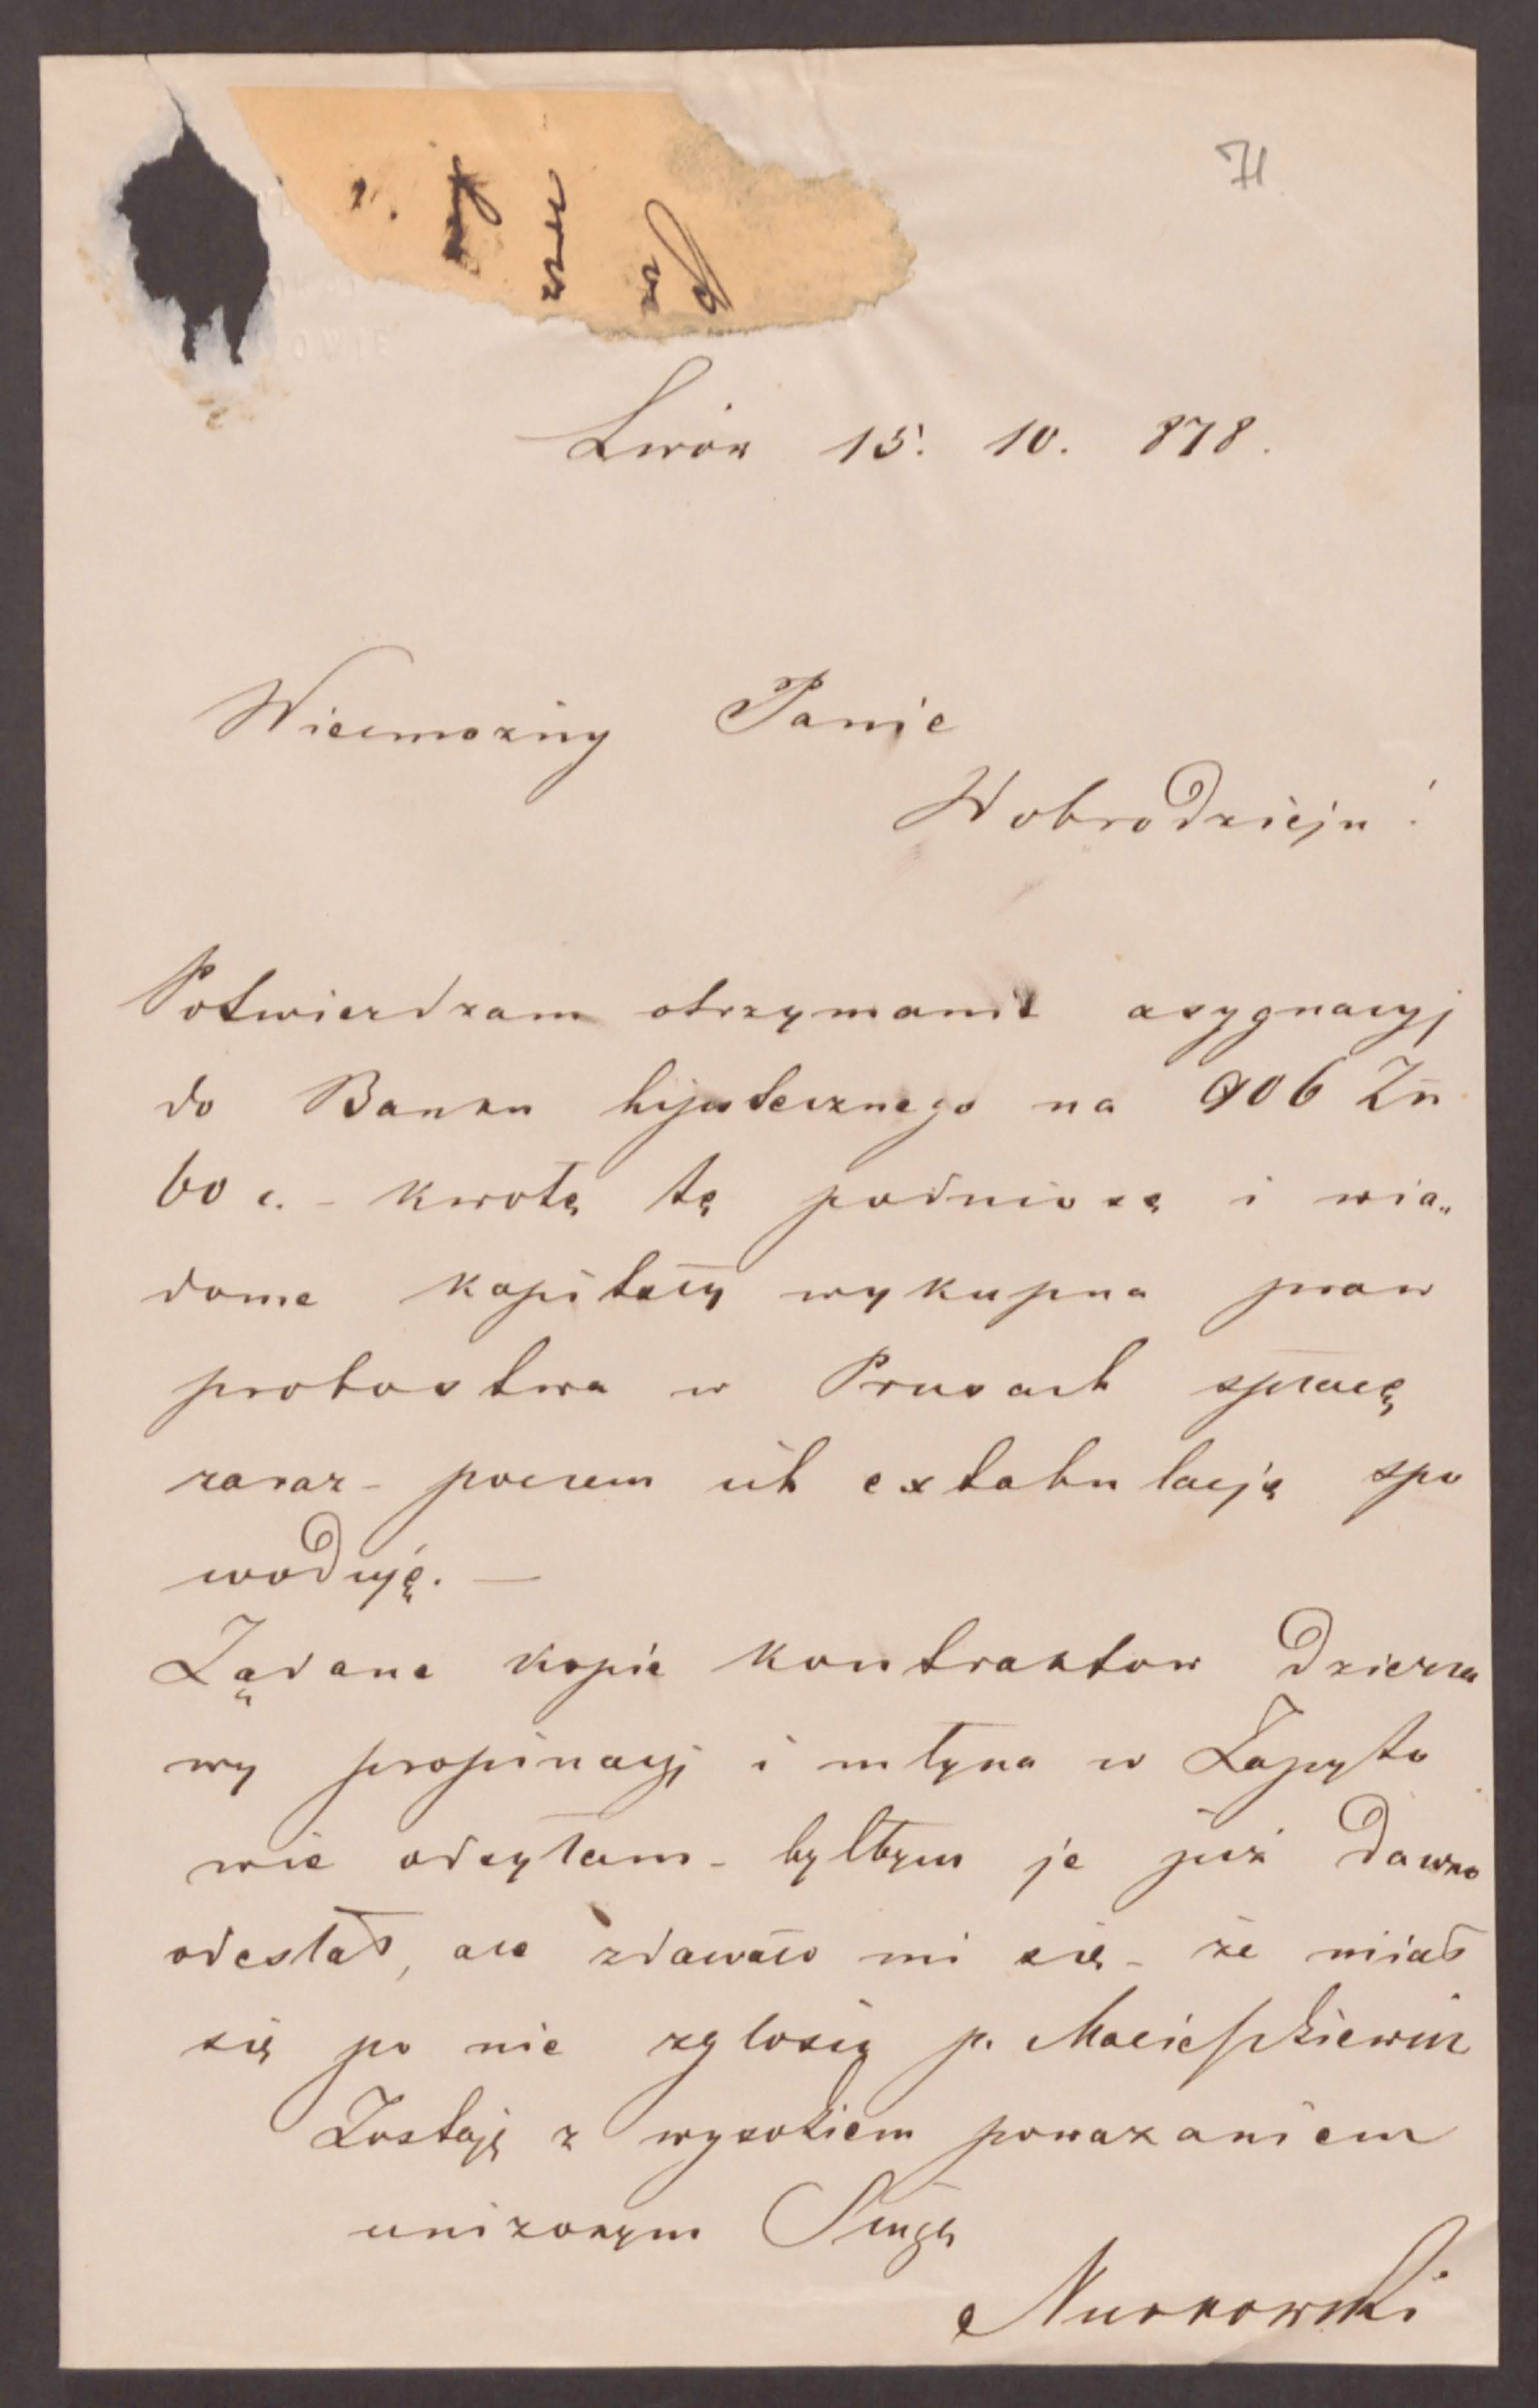 71
Lwów 15. 10. 878.
Wielmożny Panie
Dobrodzieju!
Potwierdzam otrzymanie asygnacyj
do Banku hipotecznego na 906 Zł
60 c. - kwotę tę podniosę i wia„
dome kapitały wykupna praw
probostwa w Prusach spłacę
zaraz - poczem ich extabulację spo
woduję. —
Żądane kopie kontraktow Dzierża
wy propinacyj i młyna w Zapyto
wie odsyłam - byłbym je już dawno
odesłał, ale zdawało mi się - że miał
się po nie zgłosić p.
Zostaję z wysokiem poważaniem
uniżonym Sługą